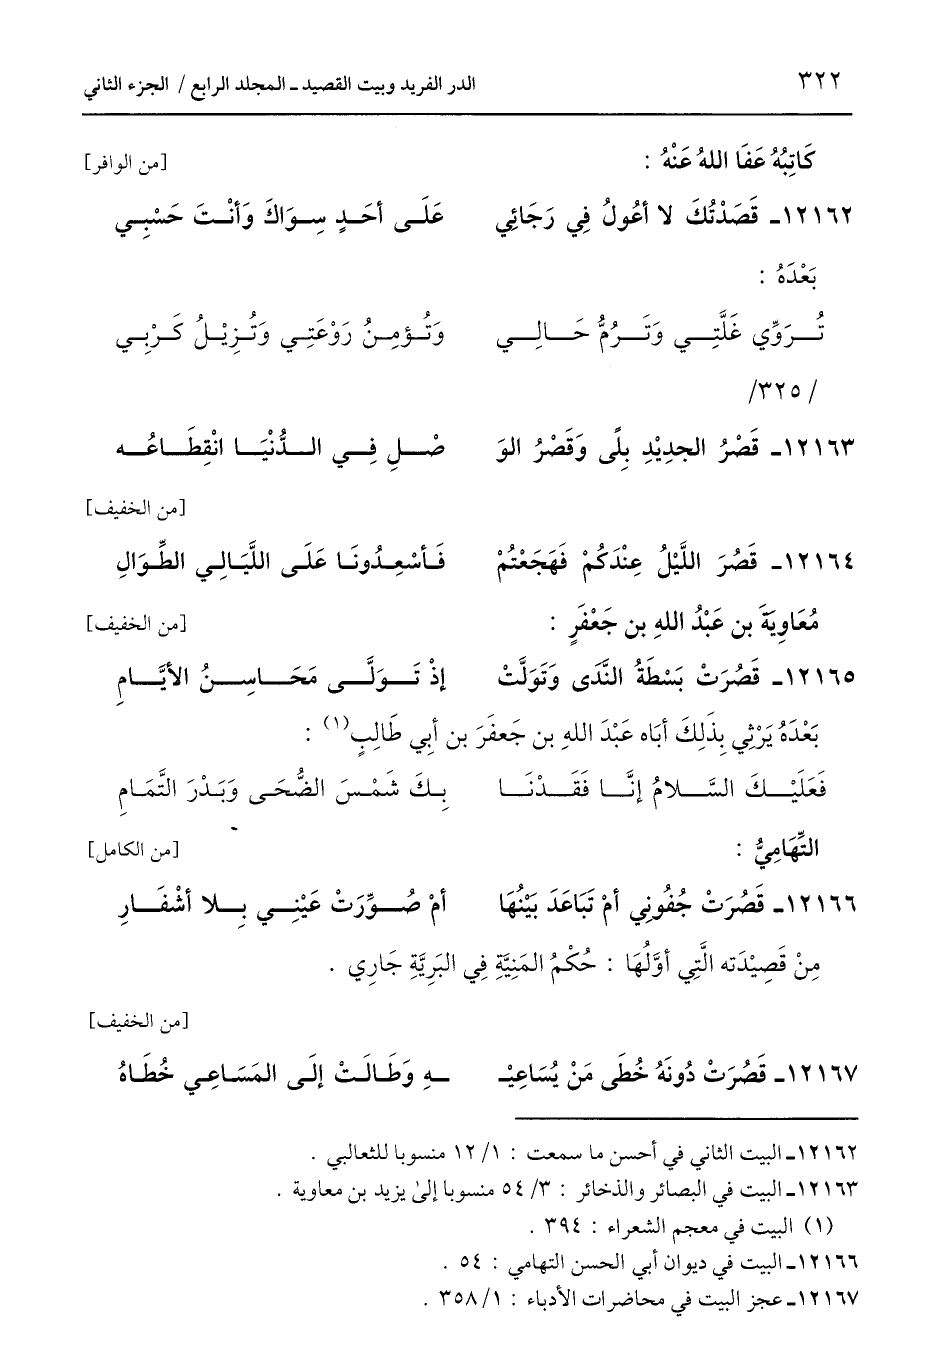 ٣٢٢ الدر الفريد وبيت القصيد ـ المجلد الرابع / الجزء الثاني
كَاتِبُهُ عَفَا اللهُ عَنْهُ : [من الوافر]
١٢١٦٢ـ قَصَدْتُكَ لا أعُولُ فِي رَجَائِي عَلَى أحَدٍ سِوَاكَ وَأنْتَ حَسْبِي
بَعْدَهُ :
تُرَوِّي غَلَّتِي وَتَرُمُّ حَالِي وَتُؤمِنُ رَوْعَتِي وَتُزِيْلُ كَرْبِي
/٣٢٥/
١٢١٦٣ـ قَصْرُ الجدِيْدِ بِلًى وَقَصْرُ الوَ صْلِ فِي الدُّنْيَا انْقِطَاعُه
[من الخفيف]
١٢١٦٤ـ قَصُرَ اللَّيْلُ عِنْدَكُمْ فَهَجَعْتُمْ فَأسْعِدُونَا عَلَى اللَّيَالِي الطِّوَالِ
مُعَاوِيَةَ بن عَبْدُ اللهِ بن جَعْفَرٍ : [من الخفيف]
١٢١٦٥ـ قَصُرَتْ بَسْطَةُ النَّدَى وَتَوَلَّتْ إذْ تَوَلَّى مَحَاسِنُ الأيَّامِ
بَعْدَهُ يَرْثِي بِذَلِكَ أبَاه عَبْدَ اللهِ بن جَعفَرَ بن أبي طَالِبٍ(١) :
فَعَلَيْكَ السَّلامُ إنَّا فَقَدْنَا بِكَ شَمْسَ الضُّحَى وَبَدْرَ التَّمَامِ
التِّهَامِيُّ : [من الكامل]
١٢١٦٦ـ قَصُرَتْ جُفُونِي أمْ تَبَاعَدَ بَيْنُهَا أمْ صُوِّرَتْ عَيْنِي بِلا أشْفَارِ
مِنْ قَصِيْدَته الَّتِي أوَّلُهَا : حُكْمُ المَنِيَّةِ فِي البَرِيَّةِ جَارِي .
[من الخفيف]
١٢١٦٧ـ قَصُرَتْ دُونَهُ خُطَى مَنْ يُسَاعِيْـ ـهِ وَطَالَتْ إلَى المَسَاعِي خُطَاهُ
١٢١٦٢ـ البيت الثاني في أحسن ما سمعت : ١/ ١٢ منسوبا للثعالبي .
١٢١٦٣ـ البيت في البصائر والذخائر : ٣/ ٥٤ منسوبا إلىٰ يزيد بن معاوية .
(١) البيت في معجم الشعراء : ٣٩٤ .
١٢١٦٦ـ البيت في ديوان أبي الحسن التهامي : ٥٤ .
١٢١٦٧ـ عجز البيت في محاضرات الأدباء : ١/ ٣٥٨ .